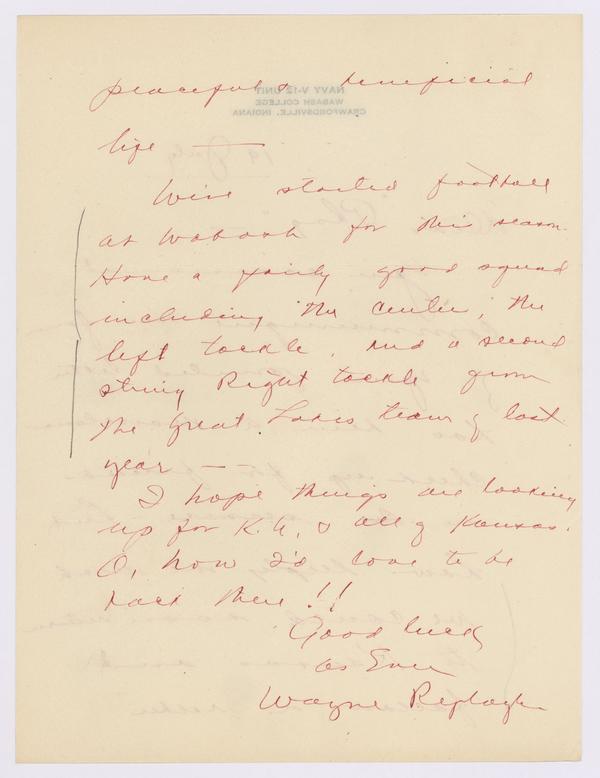 peaceful & beneficial
life —
We've started football
at Wabash for this season.
Have a fairly good squad
including the center, the
left tackle, and a second
string Right tackle from
the Great Lakes team of last
year —
I hope things are looking
up for K.U. & all of Kansas.
O, how I'd love to be
back there!!
Good luck
as Ever
Wayne Replogle
NAVY V-12 UNIT
WABASH COLLEGE
CRAWFORDSVILLE, INDIANA
19 July